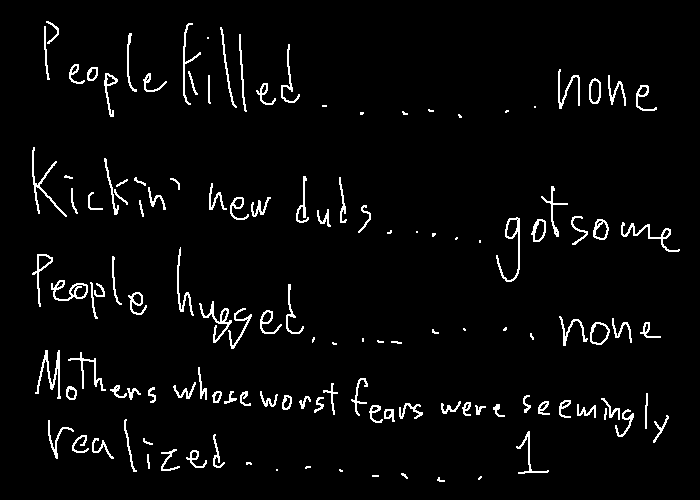 People killed. . . . . . . none
Kickin' new duds. . . . . got some
People hugged. . . . . . . . . none
Mothers whose worst fears were seemingly
realized. . . . . . . . 1